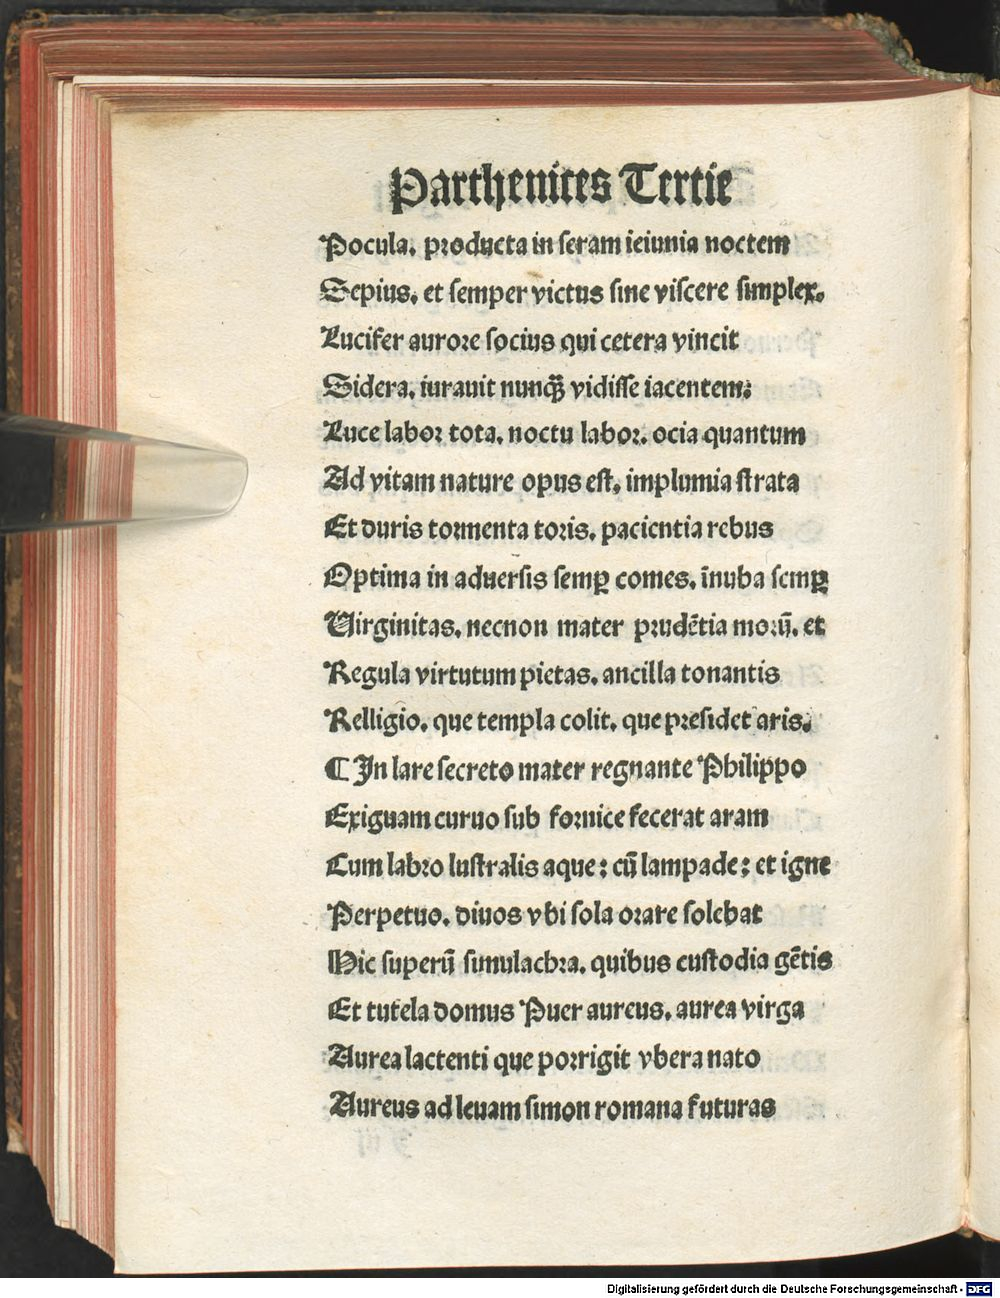 Parthenices Tertie
Pocula. producta in seram ieiunia noctem
Sepius. et semper victus sine viscere simplex.
Lucifer aurore socius qui cetera vincit
Sidera. iurauit nunq̃ vidisse iacentem:
Luce labor tota. noctu labor. ocia quantum
Ad vitam nature opus est. implumia strata
Et duris tormenta toris. pacientia rebus
Optima in aduersis semꝑ comes. īnuba semꝑ
Virginitas. necnon mater prudētia morū. et
Regula virtutum pietas. ancilla tonantis
Relligio. que templa colit. que presidet aris.
¶ In lare secreto mater regnante Philippo
Exiguam curuo sub fornice fecerat aram
Cum labro lustralis aque: cū lampade: et igne
Perpetuo. diuos vbi sola orare solebat
Hic superū simulacbra. quibus custodia gētis
Et tutela domus Puer aureus. aurea virga
Aurea lactenti que porrigit vbera nato
Aureus ad leuam simon romana futuras
Digitalisierung gefördert durch die Deutsche Forschungsgemeinschaft - DFG